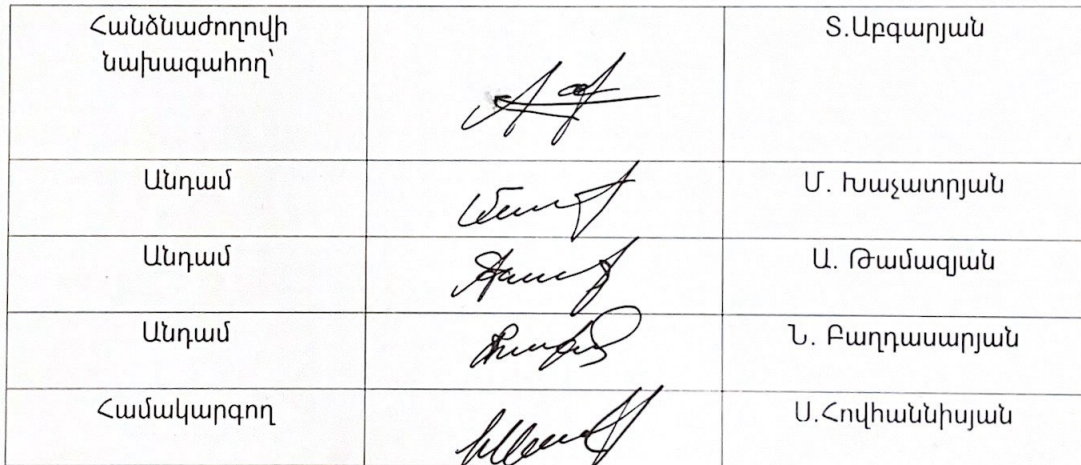 Հանձնաժողովի
նախագահող՝
Տ.Աբգարյան
Անդամ
Մ. Խաչատրյան
Անդամ
Ա. Թամազյան
Անդամ
Ն. Բաղդասարյան
Համակարգող
Ս.Հովհաննիսյան